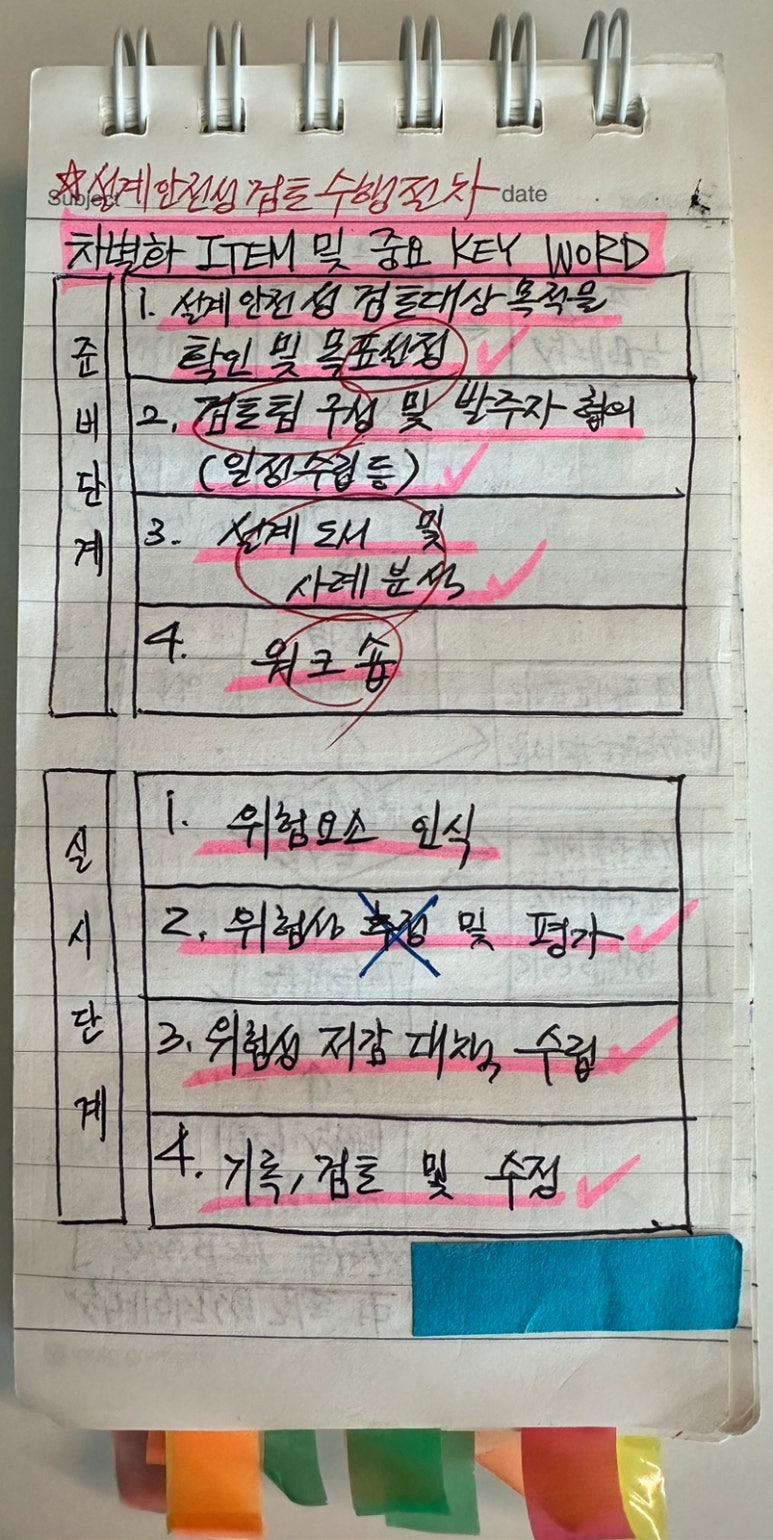 Subject
date
☆설계안전성 검토 수행절차
차별화 ITEM 및 중요 KEY WORD
준비단계
1. 설계안전성 검토대상 목적을
확인 및 목표선정
2. 검토팀 구성 및 발주자 협의
(일정수립 등)
3. 설계도서 및
사례분석
4. 워크숍
실시단계
1. 위험요소 인식
2. 위험성 추정 및 평가
3. 위험성 저감 대책 수립
4. 기록, 검토 및 수정